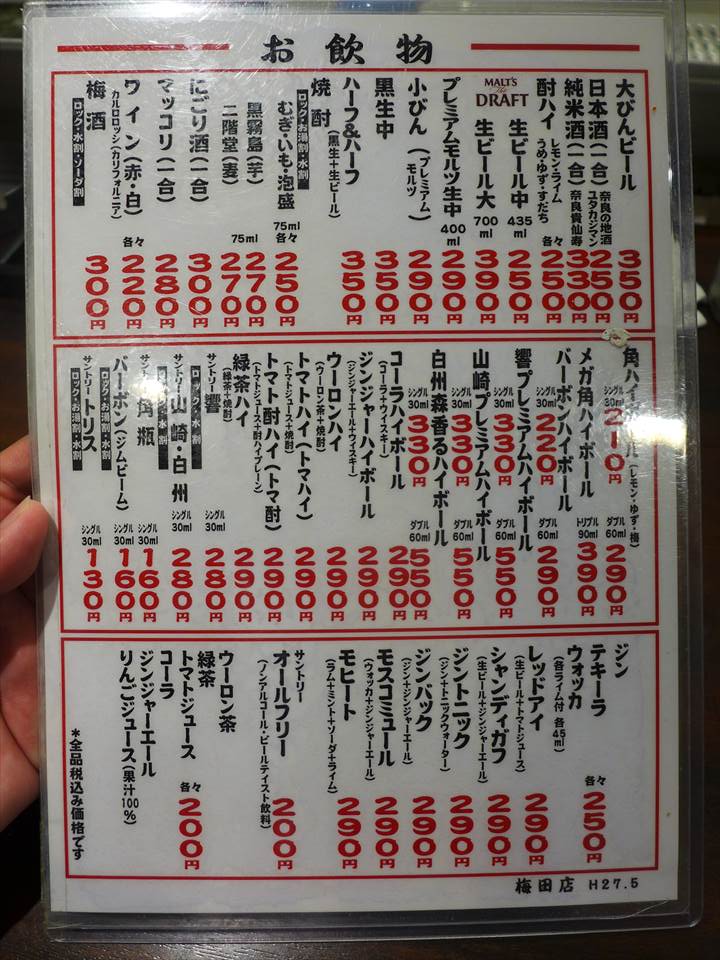 お飲物
大びんビール 350円
日本酒(一合) 奈良の地酒 ユタカジマン 250円
純米酒(一合) 奈良貴仙寿 330円
酎ハイ レモン・ライム うめ・ゆず・すだち 各々 250円
MALT'S The DRAFT
生ビール中 435ml 250円
生ビール大 700ml 390円
プレミアムモルツ生中 400ml 290円
小びん (プレミアムモルツ) 290円
黒生中 350円
ハーフ&ハーフ (黒生+生ビール) 350円
焼酎 ロック・お湯割・水割
むぎ・いも・泡盛 75ml 各々 250円
黒霧島(芋) 75ml 270円
二階堂(麦) 270円
にごり酒(一合) 300円
マッコリ(一合) 280円
ワイン(赤・白) カルロロッシ(カリフォルニア) 各々 220円
梅酒 ロック・水割・ソーダ割 300円
角ハイボール (レモン・ゆず・梅) シングル30ml 210円 ダブル60ml 290円
メガ角ハイボール トリプル90ml 390円
バーボンハイボール シングル30ml 220円 ダブル60ml 290円
響プレミアムハイボール シングル30ml 330円 ダブル60ml 550円
山崎プレミアムハイボール シングル30ml 330円 ダブル60ml 550円
白州森香るハイボール シングル30ml 330円 ダブル60ml 550円
コーラハイボール (コーラ+ウイスキー) 290円
ジンジャーハイボール (ジンジャーエール+ウイスキー) 290円
ウーロンハイ (ウーロン茶+焼酎) 290円
トマトハイ(トマハイ) (トマトジュース+焼酎) 290円
トマト酎ハイ(トマ酎) (トマトジュース+酎ハイプレーン) 290円
緑茶ハイ (緑茶+焼酎) 290円
サントリー 響 ロック・お湯割・水割 シングル30ml 280円
サントリー 山崎・白州 シングル30ml 280円
サントリー 角瓶 シングル30ml 160円
バーボン(ジムビーム) ロック・お湯割・水割 シングル30ml 160円
サントリー トリス ロック・お湯割・水割 シングル30ml 130円
ジン
テキーラ
ウォッカ
(各ライム付 各45ml) 各々 250円
レッドアイ (生ビール+トマトジュース) 290円
シャンディガフ (生ビール+ジンジャーエール) 290円
ジントニック (ジン+トニックウォーター) 290円
ジンバック (ジン+ジンジャーエール) 290円
モスコミュール (ウォッカ+ジンジャーエール) 290円
モヒート (ラム+ミント+ソーダ+ライム) 290円
サントリー オールフリー (ノンアルコール・ビールテイスト飲料) 200円
ウーロン茶
緑茶
トマトジュース
コーラ
ジンジャーエール
りんごジュース(果汁100%)
各々 200円
*全品税込み価格です
梅田店 H27.5